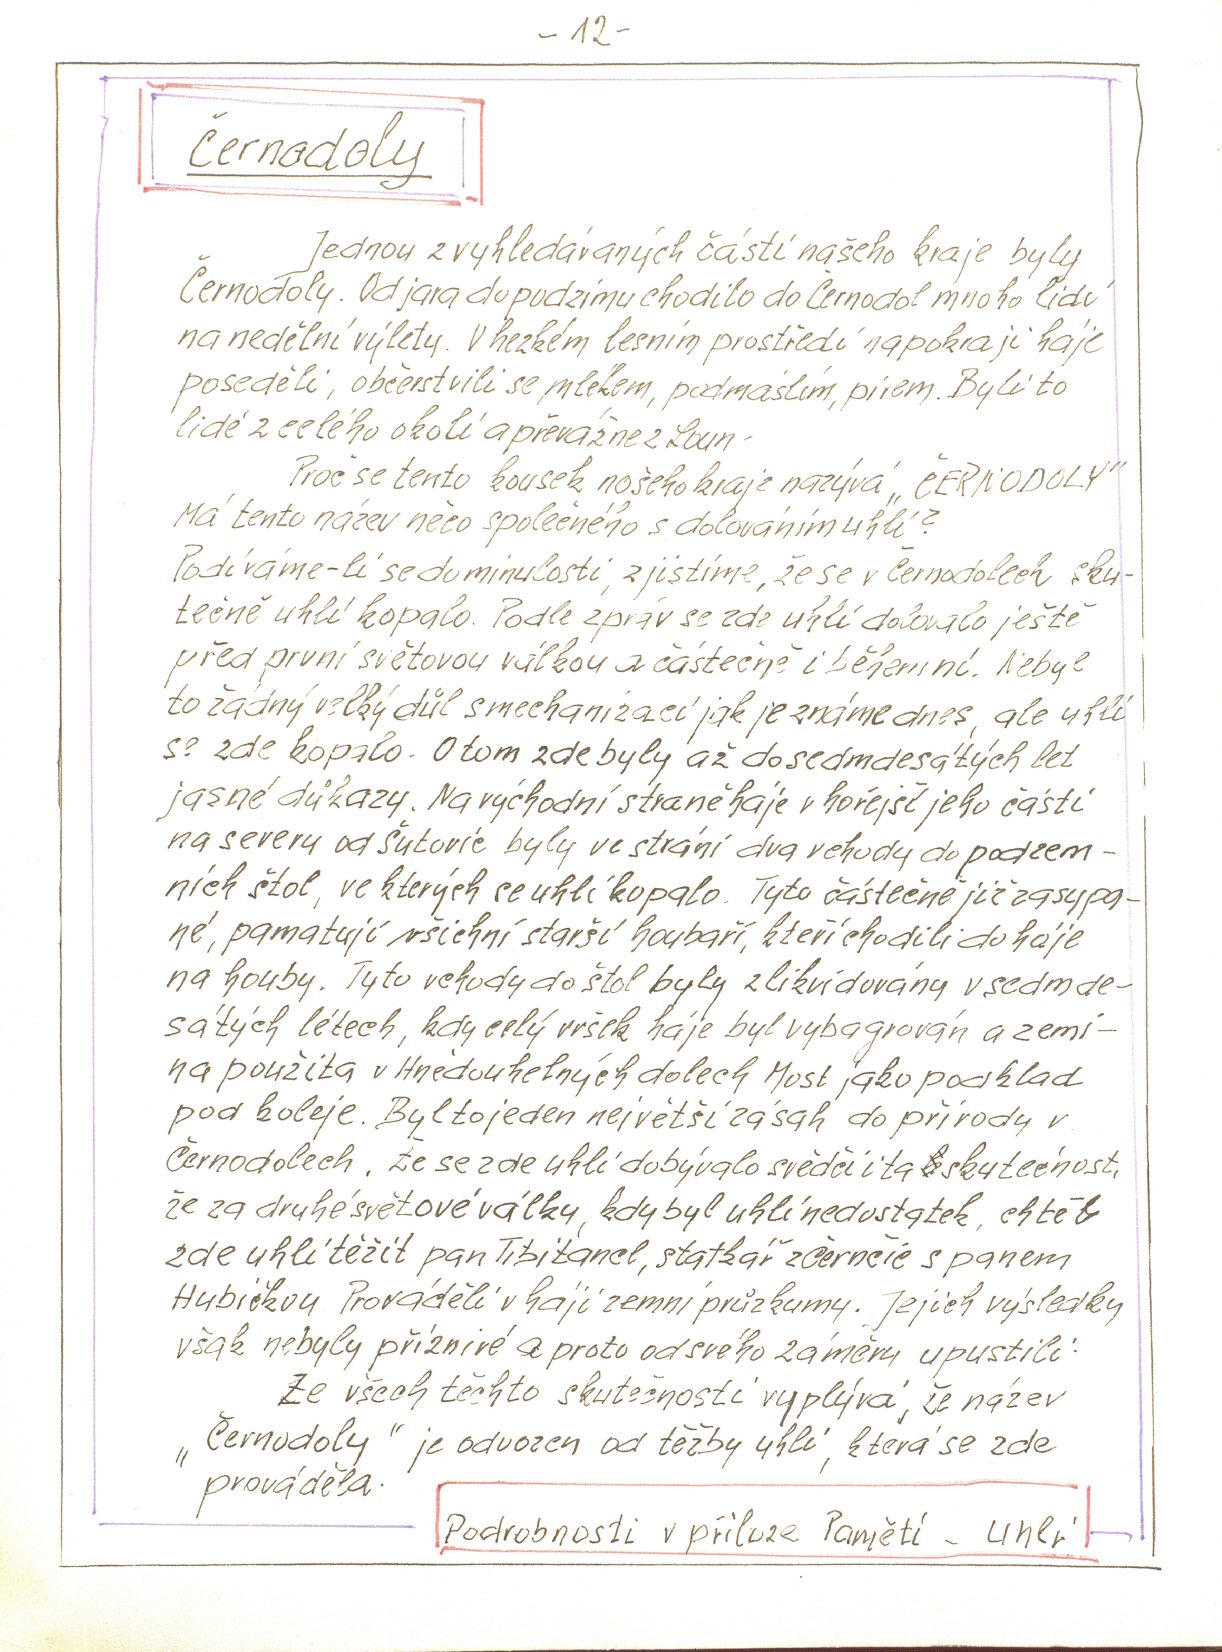 - 12 -
Černodoly
Jednou z vyhledávaných částí našeho kraje byly
Černodoly. Od jara do podzimu chodilo do Černodol mnoho lidí
na nedělní výlety. V hezkém lesním prostředí na pokraji háje
poseděli, občerstvili se mlékem, podmáslím, pivem. Byli to
lidé z celého okolí a převážně z Loun.
Proč se tento kousek našeho kraje nazývá „ČERNODOLY"
Má tento název něco společného s dolováním uhlí?
Podíváme-li se do minulosti, zjistíme, že se v Černodolech sku-
tečně uhlí kopalo. Podle zpráv se zde uhlí dolovalo ještě
před první světovou válkou a částečně i během ní. Nebyl
to žádný velký důl s mechanizací jak je známe dnes, ale uhlí
se zde kopalo. O tom zde byly až do sedmdesátých let
jasné důkazy. Na východní straně háje v hořejší jeho části
na severu od Šutovic byly ve stráni dva vchody do podzem-
ních štol, ve kterých se uhlí kopalo. Tyto částečně již zasypa-
né, pamatují všichni starší houbaři, kteří chodili do háje
na houby. Tyto vchody do štol byly zlikvidovány v sedmde-
sátých létech, kdy celý vršek háje byl vybagrován a zemi-
na použita v Hnědouhelných dolech Most jako podklad
pod koleje. Byl to jeden největší zásah do přírody v
Černodolech. Že se zde uhlí dobývalo svědčí i ta skutečnost,
že za druhé světové války, kdy byl uhlí nedostatek, chtěl
zde uhlí těžit pan Tibitancl, statkář z Černčic s panem
Hubičkou Prováděli v háji zemní průzkumy. Jejich výsledky
však nebyly příznivé a proto od svého záměru upustili.
Ze všech těchto skutečností vyplývá, že název
„Černodoly" je odvozen od těžby uhlí, která se zde
prováděla.
Podrobnosti v příloze Pamětí - Uhlí